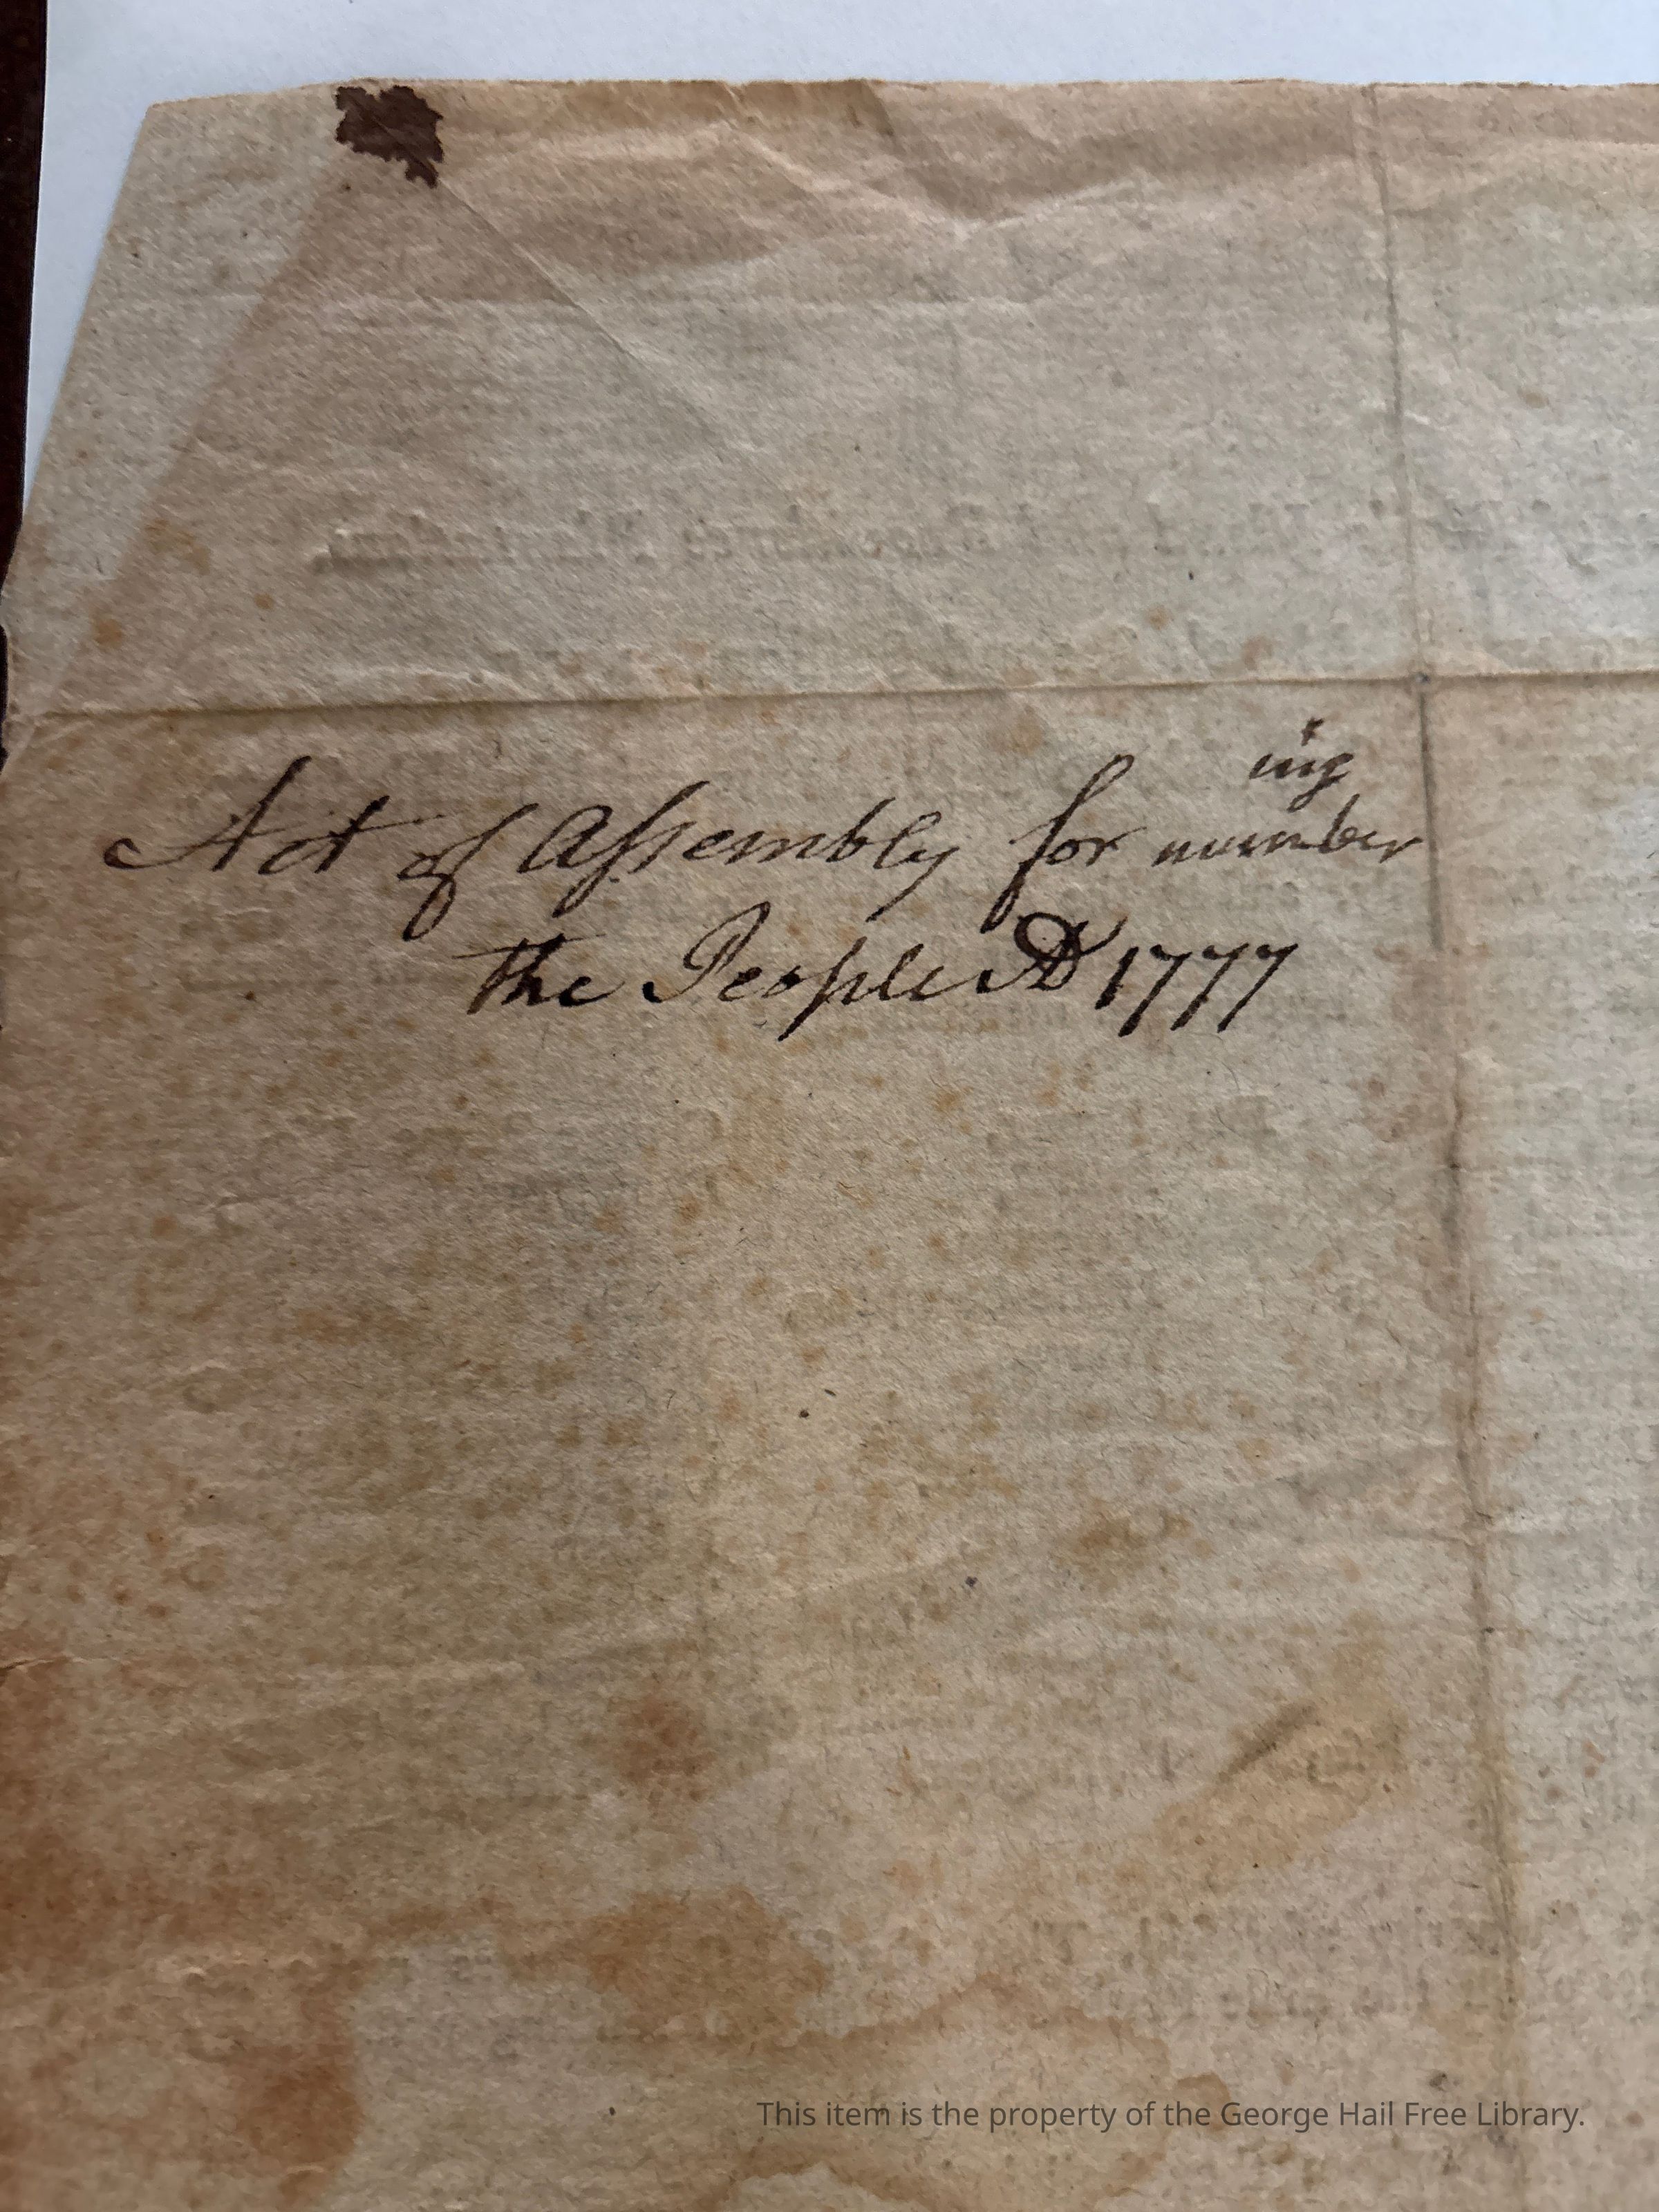 Act of Aſsembly for number
ing
the People AD 1777
This item is the property of the George Hail Free Library.